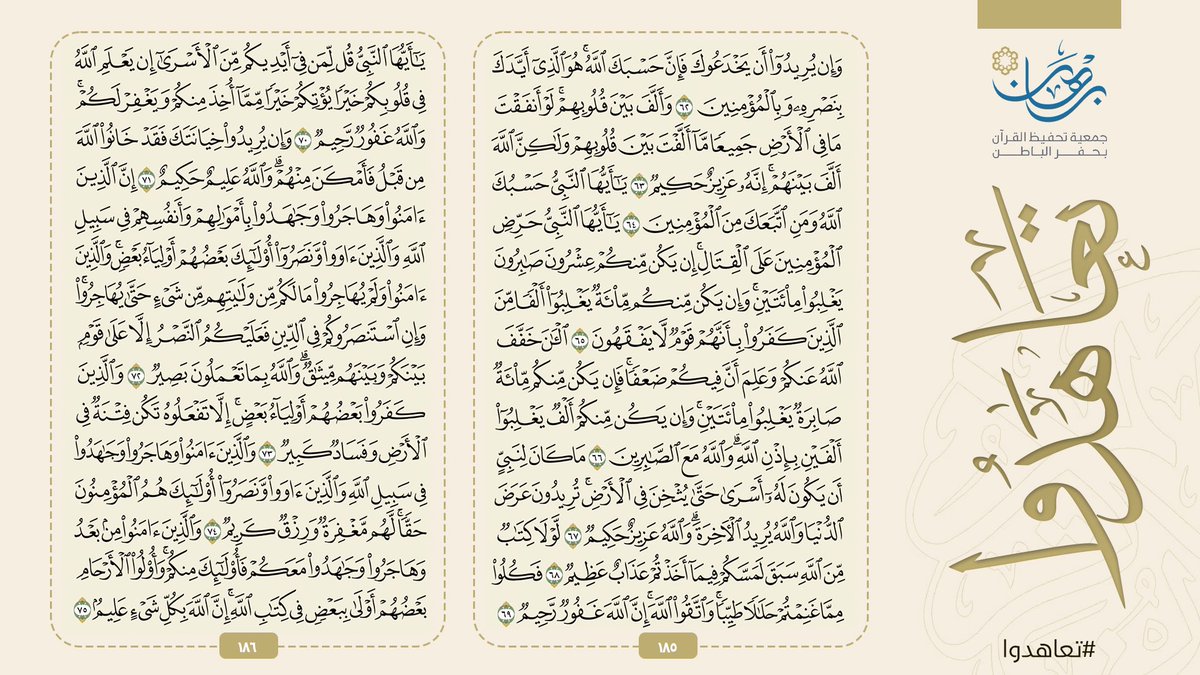 برهان
جمعية تحفيظ القرآن
بحفر الباطن
تعاهدوا
#تعاهدوا
وَإِن يُرِيدُوٓا۟ أَن يَخْدَعُوكَ فَإِنَّ حَسْبَكَ ٱللَّهُ ۚ هُوَ ٱلَّذِىٓ أَيَّدَكَ
بِنَصْرِهِۦ وَبِٱلْمُؤْمِنِينَ ٦٢ وَأَلَّفَ بَيْنَ قُلُوبِهِمْ ۚ لَوْ أَنفَقْتَ
مَا فِى ٱلْأَرْضِ جَمِيعًا مَّآ أَلَّفْتَ بَيْنَ قُلُوبِهِمْ وَلَـٰكِنَّ ٱللَّهَ
أَلَّفَ بَيْنَهُمْ ۚ إِنَّهُۥ عَزِيزٌ حَكِيمٌ ٦٣ يَـٰٓأَيُّهَا ٱلنَّبِىُّ حَسْبُكَ
ٱللَّهُ وَمَنِ ٱتَّبَعَكَ مِنَ ٱلْمُؤْمِنِينَ ٦٤ يَـٰٓأَيُّهَا ٱلنَّبِىُّ حَرِّضِ
ٱلْمُؤْمِنِينَ عَلَى ٱلْقِتَالِ ۚ إِن يَكُن مِّنكُمْ عِشْرُونَ صَـٰبِرُونَ
يَغْلِبُوا۟ مِا۟ئَتَيْنِ ۚ وَإِن يَكُن مِّنكُم مِّا۟ئَةٌ يَغْلِبُوٓا۟ أَلْفًا مِّنَ
ٱلَّذِينَ كَفَرُوا۟ بِأَنَّهُمْ قَوْمٌ لَّا يَفْقَهُونَ ٦٥ ٱلْـَٔـٰنَ خَفَّفَ
ٱللَّهُ عَنكُمْ وَعَلِمَ أَنَّ فِيكُمْ ضَعْفًا ۚ فَإِن يَكُن مِّنكُم مِّا۟ئَةٌ
صَابِرَةٌ يَغْلِبُوا۟ مِا۟ئَتَيْنِ ۚ وَإِن يَكُن مِّنكُمْ أَلْفٌ يَغْلِبُوٓا۟
أَلْفَيْنِ بِإِذْنِ ٱللَّهِ ۗ وَٱللَّهُ مَعَ ٱلصَّـٰبِرِينَ ٦٦ مَا كَانَ لِنَبِىٍّ
أَن يَكُونَ لَهُۥٓ أَسْرَىٰ حَتَّىٰ يُثْخِنَ فِى ٱلْأَرْضِ ۚ تُرِيدُونَ عَرَضَ
ٱلدُّنْيَا وَٱللَّهُ يُرِيدُ ٱلْـَٔاخِرَةَ ۗ وَٱللَّهُ عَزِيزٌ حَكِيمٌ ٦٧ لَّوْلَا كِتَـٰبٌ
مِّنَ ٱللَّهِ سَبَقَ لَمَسَّكُمْ فِيمَآ أَخَذْتُمْ عَذَابٌ عَظِيمٌ ٦٨ فَكُلُوا۟
مِمَّا غَنِمْتُمْ حَلَـٰلًا طَيِّبًا ۚ وَٱتَّقُوا۟ ٱللَّهَ ۚ إِنَّ ٱللَّهَ غَفُورٌ رَّحِيمٌ ٦٩
١٨٥
يَـٰٓأَيُّهَا ٱلنَّبِىُّ قُل لِّمَن فِىٓ أَيْدِيكُم مِّنَ ٱلْأَسْرَىٰٓ إِن يَعْلَمِ ٱللَّهُ
فِى قُلُوبِكُمْ خَيْرًا يُؤْتِكُمْ خَيْرًا مِّمَّآ أُخِذَ مِنكُمْ وَيَغْفِرْ لَكُمْ ۗ
وَٱللَّهُ غَفُورٌ رَّحِيمٌ ٧٠ وَإِن يُرِيدُوا۟ خِيَانَتَكَ فَقَدْ خَانُوا۟ ٱللَّهَ
مِن قَبْلُ فَأَمْكَنَ مِنْهُمْ ۗ وَٱللَّهُ عَلِيمٌ حَكِيمٌ ٧١ إِنَّ ٱلَّذِينَ
ءَامَنُوا۟ وَهَاجَرُوا۟ وَجَـٰهَدُوا۟ بِأَمْوَٰلِهِمْ وَأَنفُسِهِمْ فِى سَبِيلِ
ٱللَّهِ وَٱلَّذِينَ ءَاوَوا۟ وَّنَصَرُوٓا۟ أُو۟لَـٰٓئِكَ بَعْضُهُمْ أَوْلِيَآءُ بَعْضٍ ۚ وَٱلَّذِينَ
ءَامَنُوا۟ وَلَمْ يُهَاجِرُوا۟ مَا لَكُم مِّن وَلَـٰيَتِهِم مِّن شَىْءٍ حَتَّىٰ يُهَاجِرُوا۟ ۚ
وَإِنِ ٱسْتَنصَرُوكُمْ فِى ٱلدِّينِ فَعَلَيْكُمُ ٱلنَّصْرُ إِلَّا عَلَىٰ قَوْمٍۭ
بَيْنَكُمْ وَبَيْنَهُم مِّيثَـٰقٌ ۗ وَٱللَّهُ بِمَا تَعْمَلُونَ بَصِيرٌ ٧٢ وَٱلَّذِينَ
كَفَرُوا۟ بَعْضُهُمْ أَوْلِيَآءُ بَعْضٍ ۚ إِلَّا تَفْعَلُوهُ تَكُن فِتْنَةٌ فِى
ٱلْأَرْضِ وَفَسَادٌ كَبِيرٌ ٧٣ وَٱلَّذِينَ ءَامَنُوا۟ وَهَاجَرُوا۟ وَجَـٰهَدُوا۟
فِى سَبِيلِ ٱللَّهِ وَٱلَّذِينَ ءَاوَوا۟ وَّنَصَرُوٓا۟ أُو۟لَـٰٓئِكَ هُمُ ٱلْمُؤْمِنُونَ
حَقًّا ۚ لَّهُم مَّغْفِرَةٌ وَرِزْقٌ كَرِيمٌ ٧٤ وَٱلَّذِينَ ءَامَنُوا۟ مِنۢ بَعْدُ
وَهَاجَرُوا۟ وَجَـٰهَدُوا۟ مَعَكُمْ فَأُو۟لَـٰٓئِكَ مِنكُمْ ۚ وَأُو۟لُوا۟ ٱلْأَرْحَامِ
بَعْضُهُمْ أَوْلَىٰ بِبَعْضٍ فِى كِتَـٰبِ ٱللَّهِ ۗ إِنَّ ٱللَّهَ بِكُلِّ شَىْءٍ عَلِيمٌۢ ٧٥
١٨٦